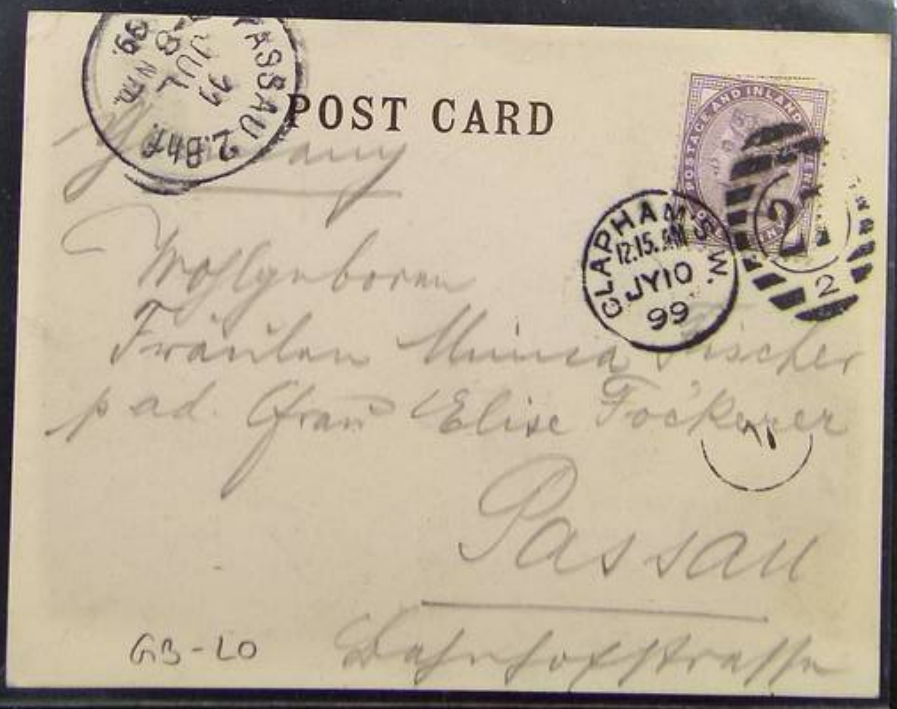 POST CARD
PASSAU 2. Bhf.
11 JUL
8 Nm.
99.
POSTAGE AND INLAND REVENUE
CLAPHAM. S.W.
12.15. AM
JY 10
99
2
Germany
Wohlgeboren
Fräulein Minna Fischer
p ad. Frau Elise Fockerer
Passau
Bahnhofstrasse
GB-LO